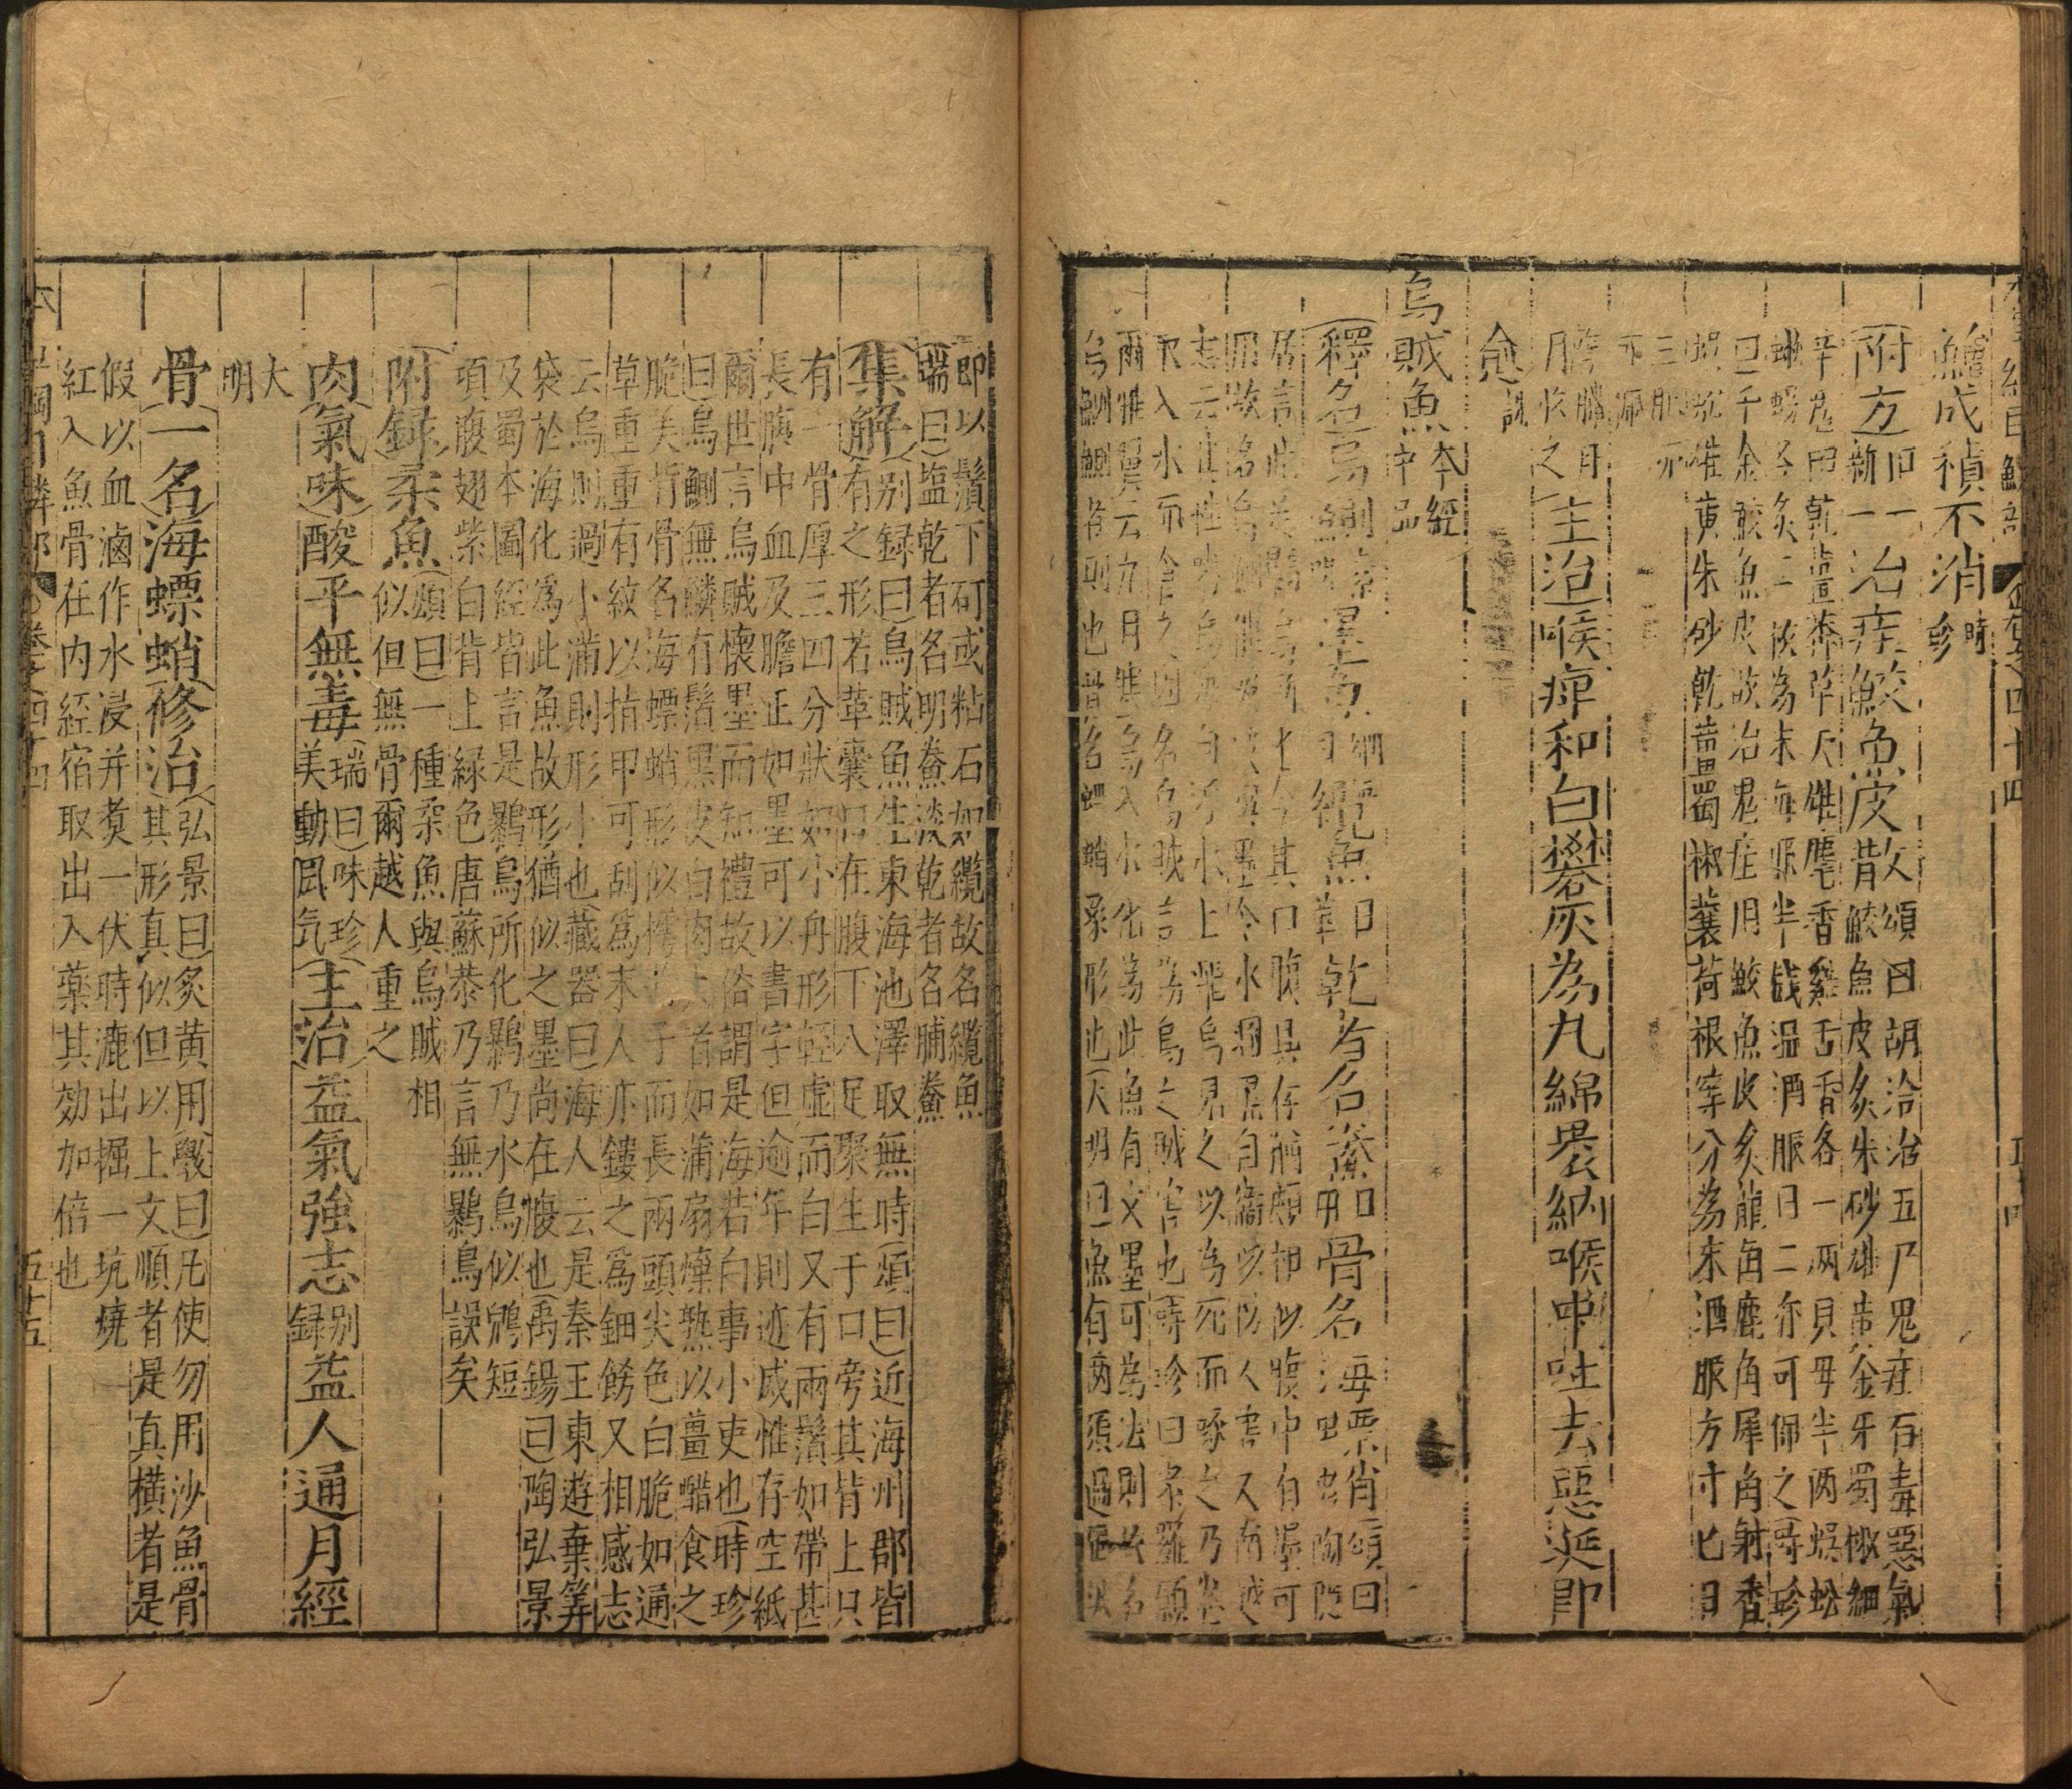 鱠成積不消時珍
附方舊一新一治疰鮫魚皮散頌曰胡洽治五尸鬼疰石毒惡氣
鮫魚皮炙朱砂雄黃金牙蜀椒細
辛鬼臼乾薑莽草天雄麝香雞舌香各一兩貝母半兩蜈蚣
蜥蜴各炙二枚為末每服半錢溫酒服日二亦可佩之時珍
曰千金鮫魚皮散治鬼疰用鮫魚皮炙龍角鹿角犀角射香
蜈蚣雄黃朱砂乾薑蜀椒蘘荷根等分為末酒服方寸匕日
三服亦
可佩
膽臘月收之主治喉痺和白礬灰為丸綿褁納喉中吐去惡涎即
愈詵
烏賊魚本經中品
釋名烏鰂墨魚纜魚日華乾者名鯗日用骨名海螵蛸頌曰陶隱
居言此是
用故名烏鰂能吸波噀墨令水溷黑自衛以防人害又南越
志云其性嗜烏每自浮水上飛烏見之以為死而啄之乃卷
取入水而食之因名烏賊言為烏之賊害也時珍曰案羅願
爾雅翼云九月寒烏入水化為此魚有文墨可為法則故名
烏鰂鰂者則也骨名螵蛸象形也大明曰魚有兩須遇風浪
即以鬚下矴或粘石如纜故名纜魚
瑞曰鹽乾者名明鯗淡乾者名脯鯗
集解別録曰烏賊魚生東海池澤取無時頌曰近海州郡皆
有之形若革囊口在腹下八足聚生于口旁其背上只
有一骨厚三四分狀如小舟形輕虛而白又有兩鬚如帶甚
長腹中血及膽正如墨可以書字但逾年則迹滅惟存空紙
爾世言烏賊懷墨而知禮故俗謂是海若白事小吏也時珍
曰烏鰂無鱗有鬚黑皮白肉大者如蒲扇煠熟以薑醋食之
脆美背骨名海螵蛸形似樗蒲子而長兩頭尖色白脆如通
草重重有紋以指甲可刮為末人亦鏤之為鈿飾又相感志
云烏則過小滿則形小也藏器曰海人云是秦王東遊棄筭
袋於海化為此魚故形猶似之墨尚在腹也禹錫曰陶弘景
及蜀本圖經皆言是鸔烏所化鸔乃水鳥似鴇短
項腹翅紫白背上緑色唐蘇恭乃言無鸔烏誤矣
附録柔魚頌曰一種柔魚與烏賊相
似但無骨爾越人重之
肉氣味酸平無毒瑞曰味珍美動風气主治益氣強志別録益人通月經
大明
骨一名海螵蛸修治弘景曰炙黃用斆曰凡使勿用沙魚骨
其形真似但以上文順者是真橫者是
假以血滷作水浸并煑一伏時漉出掘一坑燒
紅入魚骨在內經宿取出入藥其効加倍也
五十五